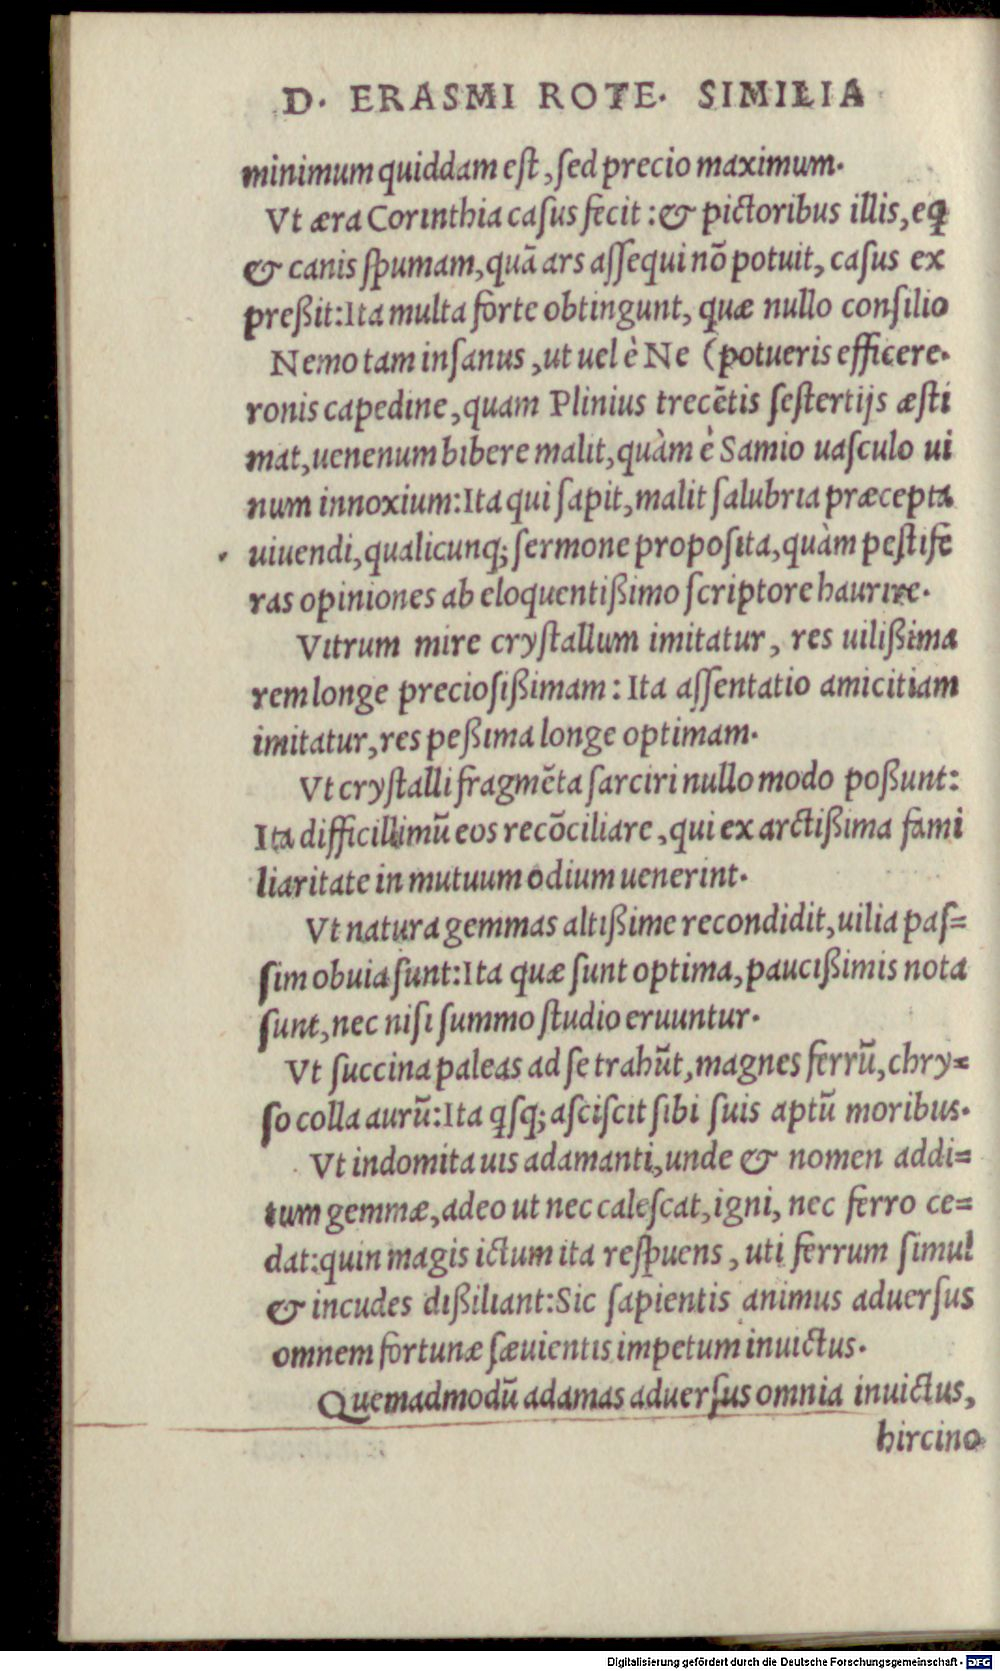 D. ERASMI ROTE. SIMILIA
minimum quiddam eſt, ſed precio maximum.
Vt æra Corinthia caſus fecit: & pictoribus illis, eꝗ
& canis ſpumam, quā ars aſſequi nō potuit, caſus ex
preßit: Ita multa forte obtingunt, quæ nullo conſilio
Nemo tam inſanus, ut uel è Ne (potueris efficere.
ronis capedine, quam Plinius trecētis ſeſtertijs æſti
mat, uenenum bibere malit, quàm è Samio uaſculo ui
num innoxium: Ita qui ſapit, malit ſalubria præcepta
uiuendi, qualicunq; ſermone propoſita, quàm peſtife
ras opiniones ab eloquentißimo ſcriptore haurire.
Vitrum mire cryſtallum imitatur, res uilißima
rem longe precioſißimam: Ita aſſentatio amicitiam
imitatur, res peßima longe optimam.
Vt cryſtalli fragmēta ſarciri nullo modo poßunt:
Ita difficillimū eos recōciliare, qui ex arctißima fami
liaritate in mutuum odium uenerint.
Vt natura gemmas altißime recondidit, uilia paſ=
ſim obuia ſunt: Ita quæ ſunt optima, paucißimis nota
ſunt, nec niſi ſummo ſtudio eruuntur.
Vt ſuccina paleas ad ſe trahūt, magnes ferrū, chry=
ſocolla aurū: Ita qſq; aſciſcit ſibi ſuis aptū moribus.
Vt indomita uis adamanti, unde & nomen addi=
tum gemmæ, adeo ut nec caleſcat, igni, nec ferro ce=
dat: quin magis ictum ita reſpuens, uti ferrum ſimul
& incudes dißiliant: Sic ſapientis animus aduerſus
omnem fortunæ ſæuientis impetum inuictus.
Quemadmodū adamas aduerſus omnia inuictus,
hircino
Digitalisierung gefördert durch die Deutsche Forschungsgemeinschaft - DFG